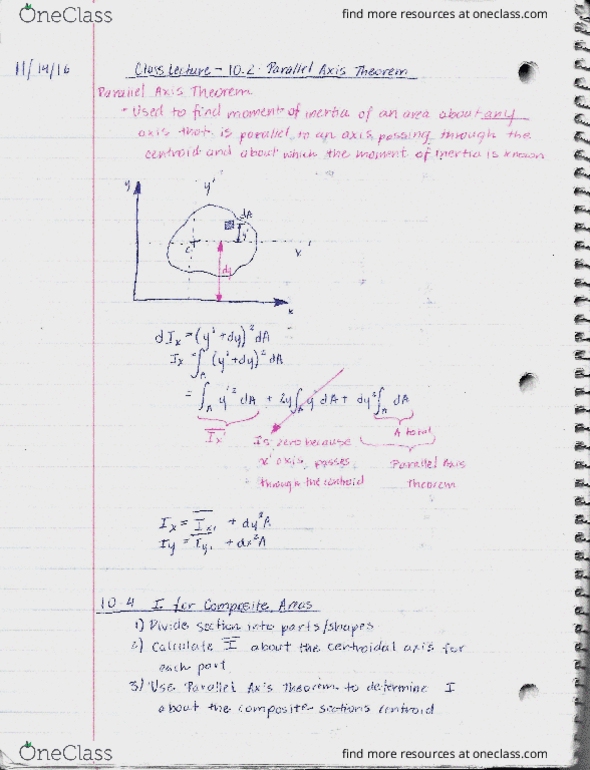 OneClass
find more resources at oneclass.com
11/14/16
Class Lecture - 10.2 Parallel Axis Theorem
Parallel Axis Theorem
• Used to find moment of inertia of an area about any
axis that is parallel to an axis passing through the
centroid and about which the moment of inertia is known
y
y'
dA
y'
C
x'
dy
x
dIx = (y' + dy)² dA
Ix = ∫A (y' + dy)² dA
= ∫A y'² dA + 2y∫A y' dA + dy² ∫A dA
Ix'
Is zero because
x' axis passes
through the centroid
A total
Parallel Axis
Theorem
Ix = Ix' + dy²A
Iy = Iy' + dx²A
10.4 I for Composite Areas
1) Divide section into parts/shapes
2) Calculate I about the centroidal axis for
each part
3) Use Parallel Axis Theorem to determine I
about the composite sections centroid
OneClass
find more resources at oneclass.com